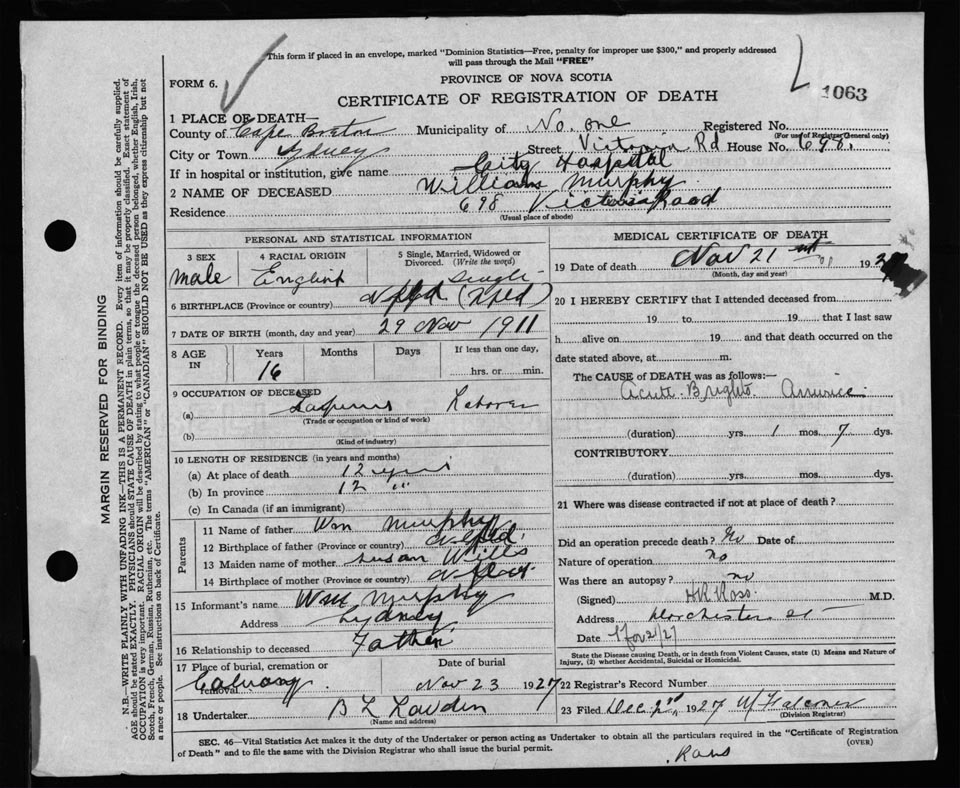 This form if placed in an envelope, marked "Dominion Statistics—Free, penalty for improper use $300," and properly addressed
will pass through the Mail "FREE"
FORM 6.
PROVINCE OF NOVA SCOTIA
1063
CERTIFICATE OF REGISTRATION OF DEATH
1 PLACE OF DEATH—
County of Cape Breton Municipality of No. one Registered No.
(For use of Registrar General only)
City or Town Sydney Street Victoria Rd House No. 698.
If in hospital or institution, give name City Hospital
2 NAME OF DECEASED William Murphy
Residence 698 Victoria Road
(Usual place of abode)
PERSONAL AND STATISTICAL INFORMATION
3 SEX
male
4 RACIAL ORIGIN
English
5 Single, Married, Widowed or
Divorced. (Write the word)
Single
6 BIRTHPLACE (Province or country) Nfld (Nfld)
7 DATE OF BIRTH (month, day and year) 29 Nov 1911
8 AGE
IN
Years
16
Months
Days
If less than one day,
hrs. or min.
9 OCCUPATION OF DECEASED
(a) Laborer
(Trade or occupation or kind of work)
(b)
(Kind of industry)
10 LENGTH OF RESIDENCE (in years and months)
(a) At place of death 12 years
(b) In province 12 "
(c) In Canada (if an immigrant)
Parents
11 Name of father Wm Murphy
12 Birthplace of father (Province or country) Nfld.
13 Maiden name of mother Susan Wills
14 Birthplace of mother (Province or country)
15 Informant's name Wm Murphy
Address Sydney
16 Relationship to deceased Father
17 Place of burial, cremation or
removal Calvary.
Date of burial
Nov 23 1927
18 Undertaker B L
(Name and address)
MEDICAL CERTIFICATE OF DEATH
19 Date of death Nov 21 192
(Month, day and year)
20 I HEREBY CERTIFY that I attended deceased from
19 to 19 that I last saw
h alive on 19 and that death occurred on the
date stated above, at m.
The CAUSE OF DEATH was as follows:—
Acute Brights
(duration) yrs. 1 mos. 7 dys.
CONTRIBUTORY
(duration) yrs. mos. dys.
21 Where was disease contracted if not at place of death?
Did an operation precede death? Date of
Nature of operation no
Was there an autopsy? no
(Signed) HR Ross. M.D.
Address Dorchester St
Date Nov 21/27
State the Disease causing Death, or in death from Violent Causes, state (1) Means and Nature of
Injury, (2) whether Accidental, Suicidal or Homicidal.
22 Registrar's Record Number
23 Filed Dec. 2nd 1927 W Falconer
(Division Registrar)
SEC. 46—Vital Statistics Act makes it the duty of the Undertaker or person acting as Undertaker to obtain all the particulars required in the "Certificate of Registration
of Death" and to file the same with the Division Registrar who shall issue the burial permit.
(OVER)
MARGIN RESERVED FOR BINDING
N.B.—WRITE PLAINLY WITH UNFADING INK—THIS IS A PERMANENT RECORD. Every item of information should be carefully supplied.
AGE should be stated EXACTLY. PHYSICIANS should STATE CAUSE OF DEATH in plain terms, so that it may be properly classified. Exact statement of
OCCUPATION is very important. RACIAL ORIGIN will be described by stating to what people or tongue the deceased person belonged, whether English, Irish,
Scotch, French, German, Russian, Ruthenian, etc. The terms "AMERICAN" or "CANADIAN" SHOULD NOT BE USED as they express citizenship but not
a race or people. See instructions on back of Certificate.